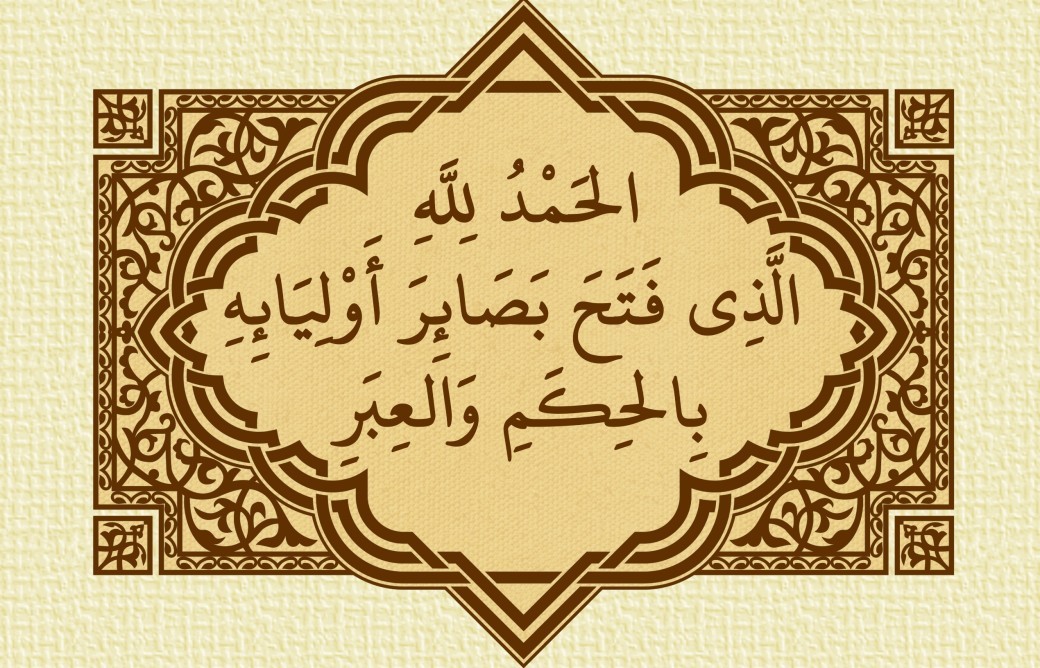 الحَمْدُ لِلَّهِ
الَّذِى فَتَحَ بَصَائِرَ أَوْلِيَائِهِ
بِالحِكَمِ وَالعِبَرِ